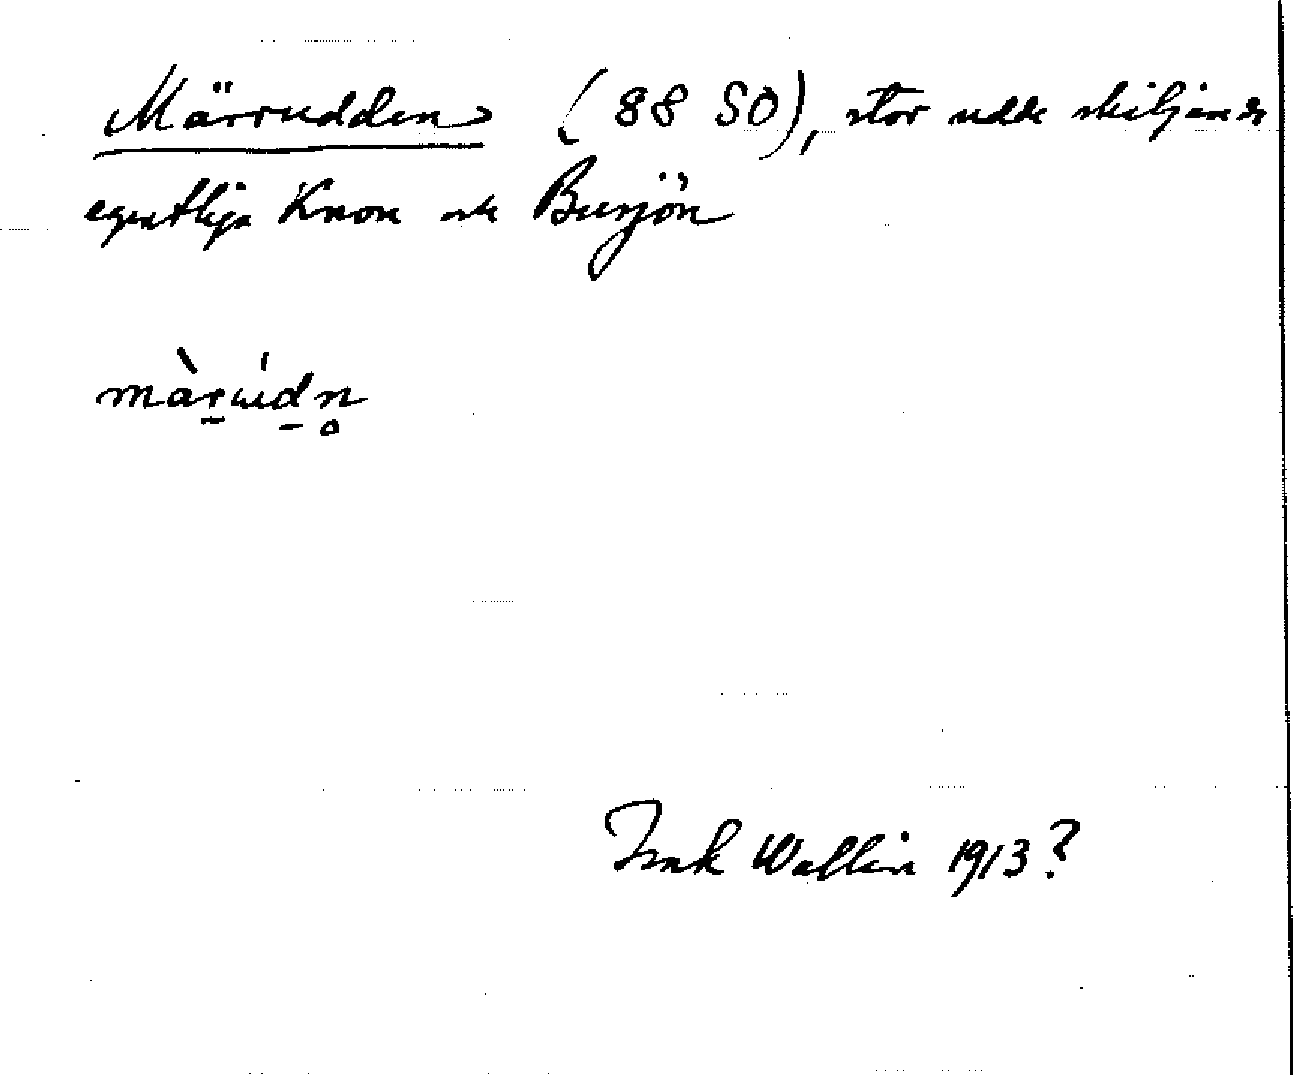 Märrudden (88 SO), stor udde skiljande
egentliga Knon och Busjön
Wallin 1913?